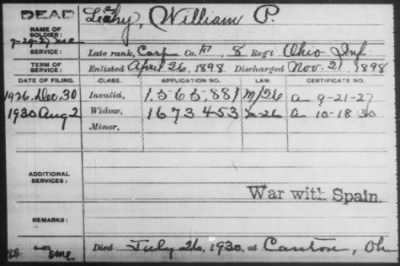 DEAD
NAME OF SOLDIER: Leahy, William P.
SERVICE: Late rank, Corp Co. A, 8 Reg't Ohio Inf
TERM OF SERVICE: Enlisted April 26, 1898 Discharged Nov. 21 1898
DATE OF FILING. CLASS. APPLICATION NO. LAW. CERTIFICATE NO.
1926 Dec. 30 Invalid, 1,565,881 a 9-21-27
1930 Aug 2 Widow, 1673453 a 10-18-30
Minor,
ADDITIONAL SERVICES:
War with Spain.
REMARKS:
Died July 26, 1930, at Canton, Oh